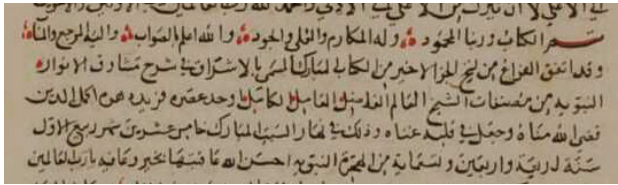 في الاعلى لا ان يتبرك من الاعلى
تم الكتاب وربنا المحمود وله المكارم والعلى والجود والله اعلم بالصواب واليه المرجع والمآب
وقد اتفق الفراغ من نسخ الجزء الاخير من الكتاب المبارك المسمى بالاشراق في شرح مشارق الانوار
النبويه من مصنفات الشيخ العالم العلامه الفاضل الكامل وحيد عصره فريد دهره اكمل الدين
قضى الله مناه وجعل في قلبه غناه وذلك في نهار السبت المبارك خامس عشرين شهر ربيع الاول
سنة اربعة واربعين وتسعماية من الهجرة النبويه احسن الله عاقبتها بخير وعافيه يا رب العالمين